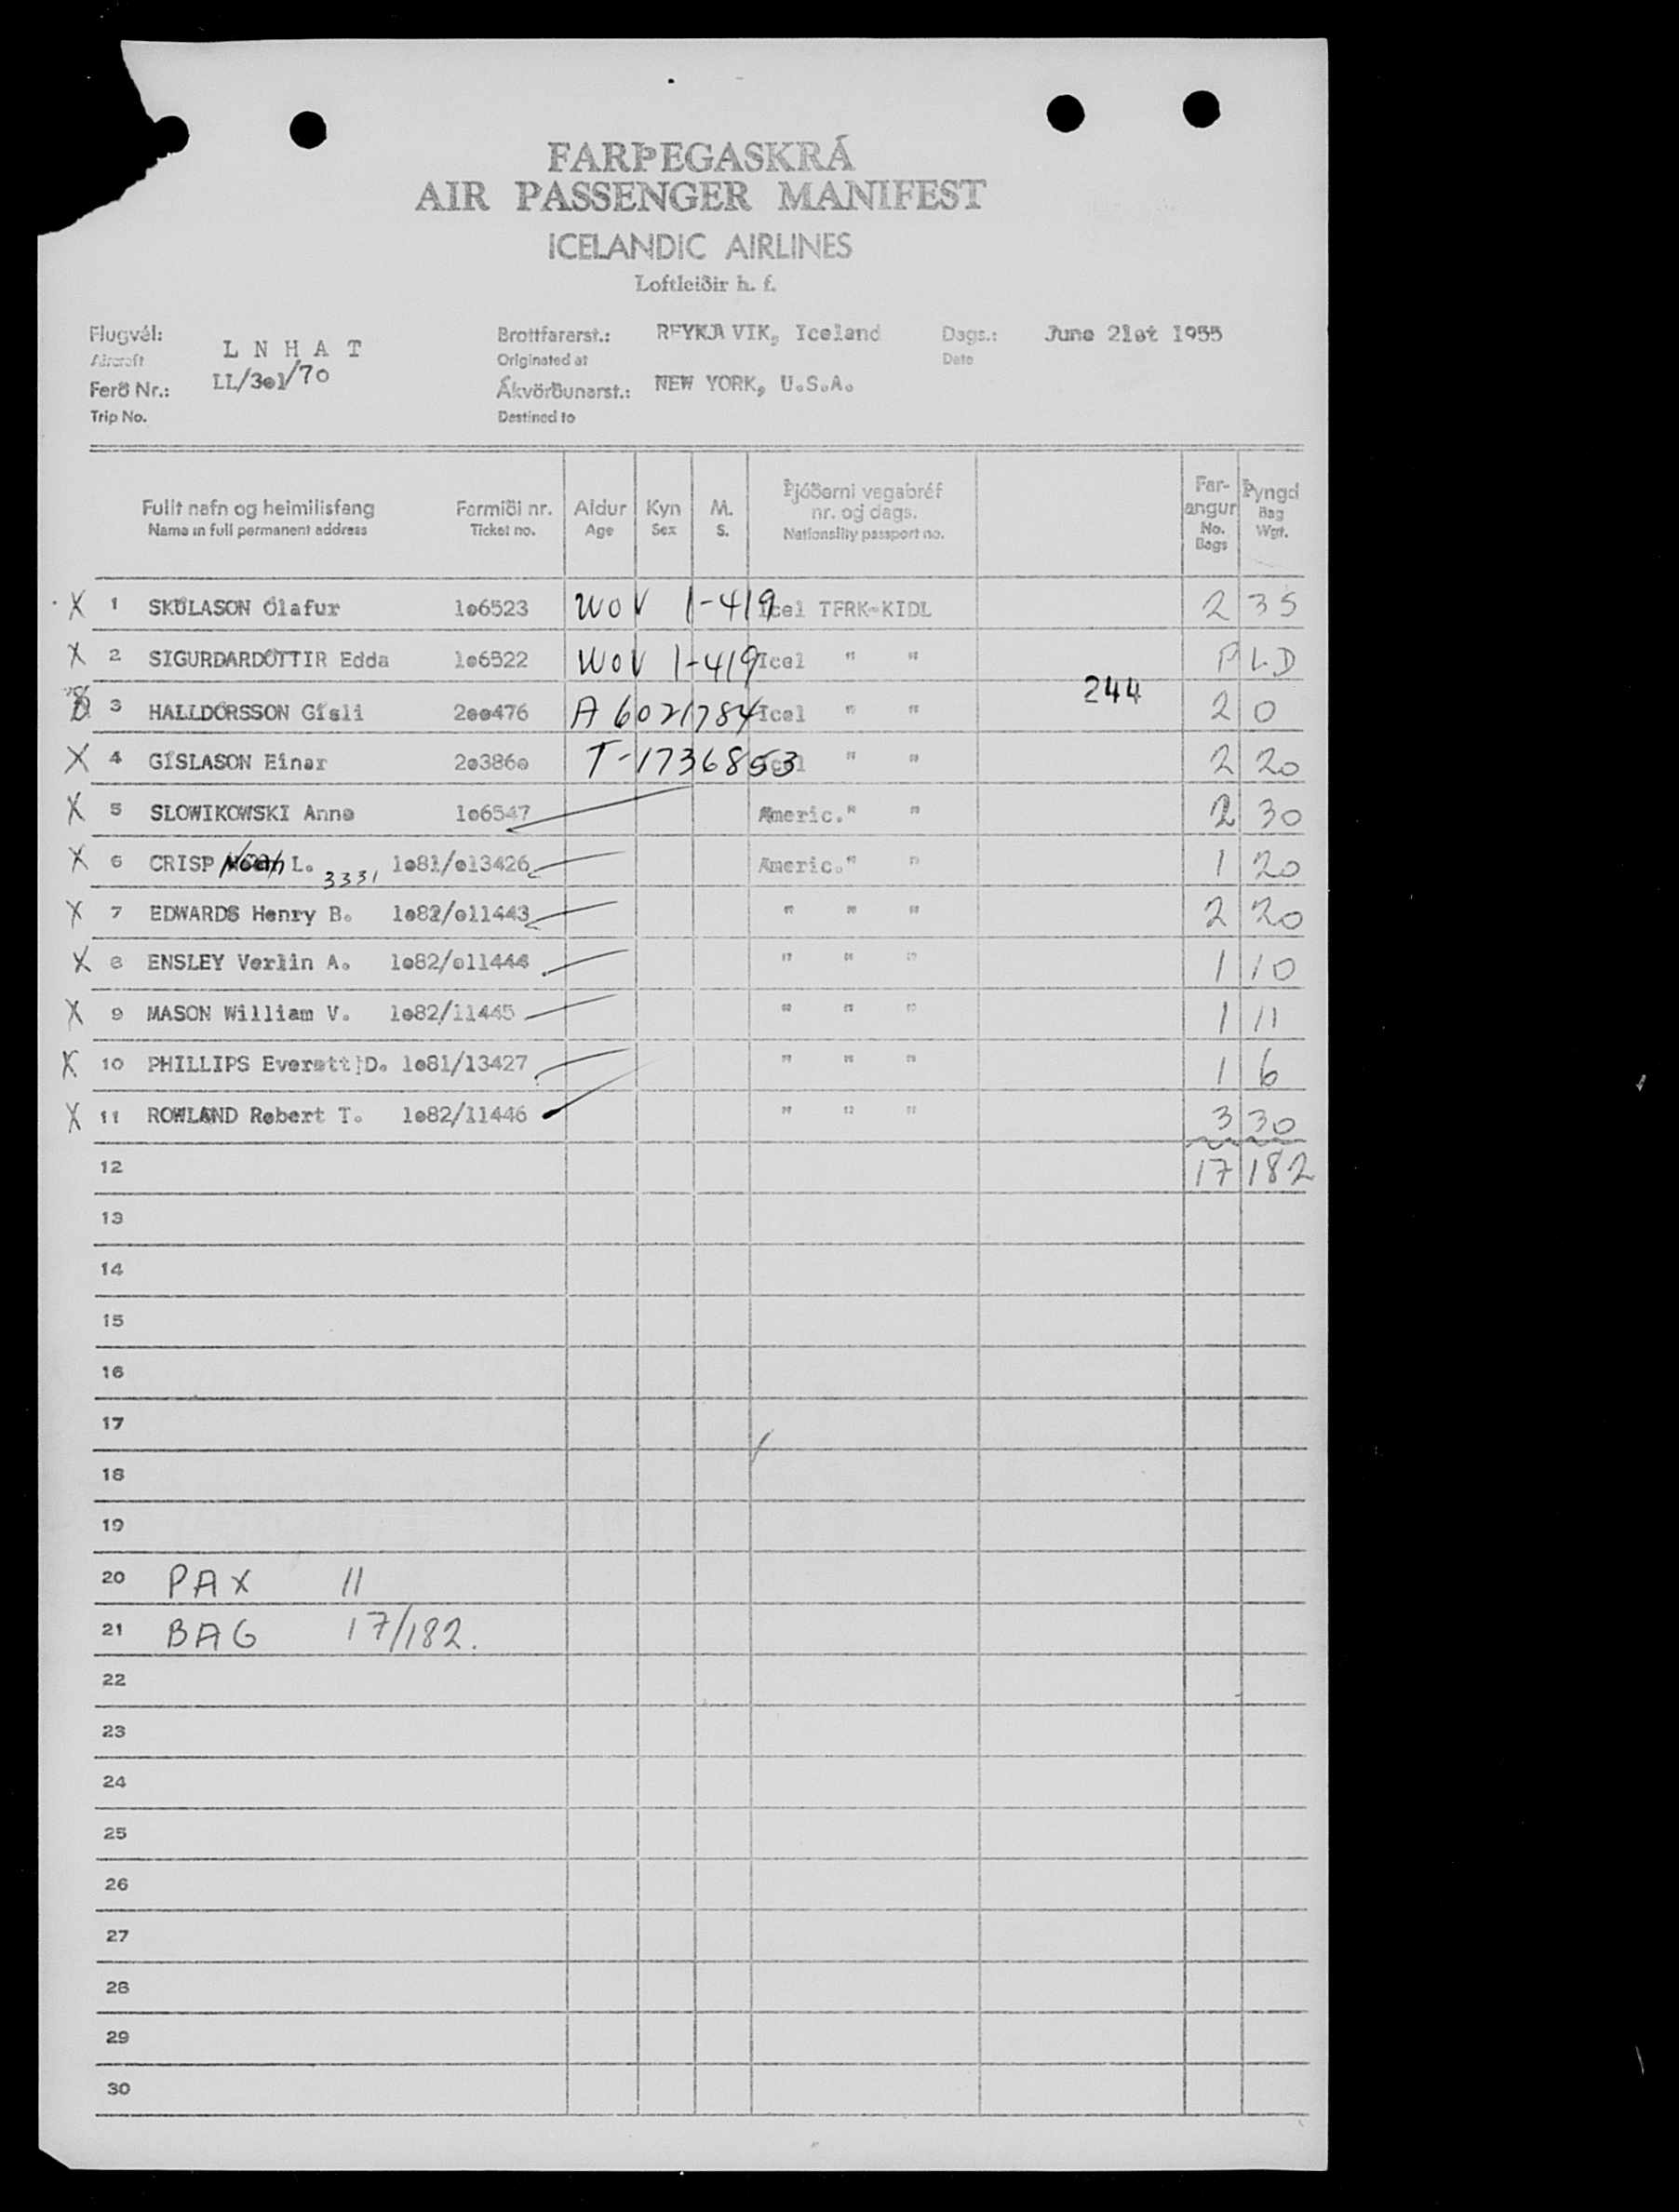 FARÞEGASKRÁ
AIR PASSENGER MANIFEST
ICELANDIC AIRLINES
Loftleiðir h. f.
Flugvél: L N H A T Brottfararst.: REYKJAVIK, Iceland Dags.: June 21st 1955
Aircraft Originated at Date
Ferð Nr.: LL/3o1/70 Ákvörðunarst.: NEW YORK, U.S.A.
Trip No. Destined to
Fullt nafn og heimilisfang Farmiði nr. Aldur Kyn M. Þjóðerni vegabréf nr. og dags. Far-angur Þyngd
Name in full permanent address Ticket no. Age Sex S. Nationality passport no. No. Bags Bag Wgt.
X 1 SKÚLASON Ólafur 1o6523 WOV 1-419 Icel TFRK-KIDL 2 35
X 2 SIGURDARDÓTTIR Edda 1o6522 WOV 1-419 Icel " " PLD
3 HALLDÓRSSON Gísli 2oo476 A 6021784 Icel " " 244 2 0
X 4 GÍSLASON Einar 2o386o T-1736853 Icel " " 2 20
X 5 SLOWIKOWSKI Anna 1o6547 Americ. " " 2 30
X 6 CRISP L. 3331 1o81/o13426 Americ. " " 1 20
X 7 EDWARDS Henry B. 1o82/o11443 " " " 2 20
X 8 ENSLEY Verlin A. 1o82/o11444 " " " 1 10
X 9 MASON William V. 1o82/11445 " " " 1 11
X 10 PHILLIPS Everett D. 1o81/13427 " " " 1 6
X 11 ROWLAND Robert T. 1o82/11446 " " " 3 30
12 17 182
13
14
15
16
17
18
19
20 PAX 11
21 BAG 17/182.
22
23
24
25
26
27
28
29
30